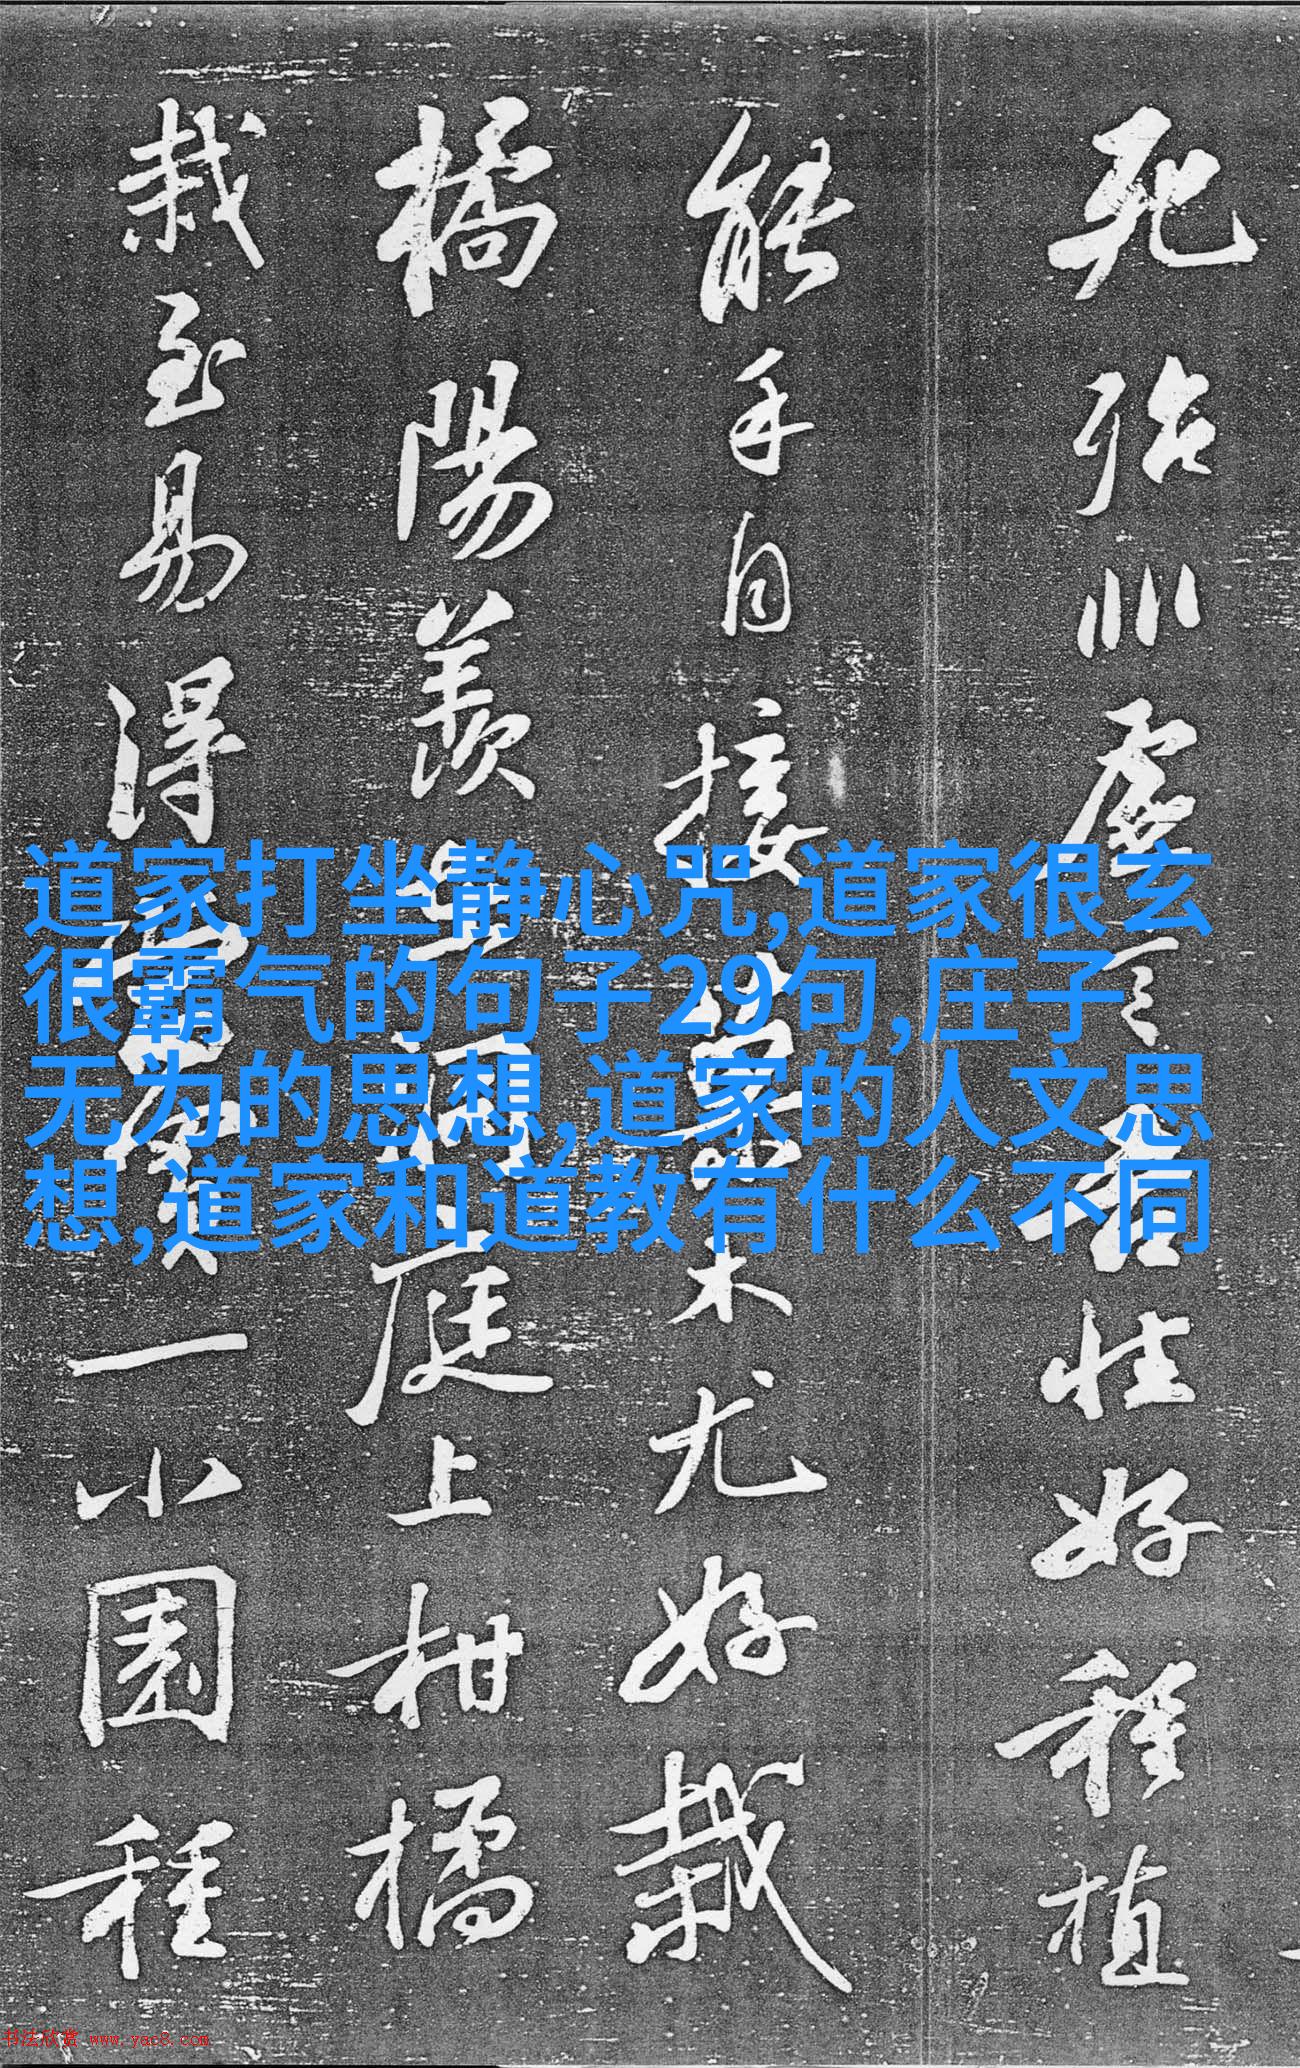 死殆非虛言吾性好種植
能手自接果木尤好栽
橘陽羨在洞庭上柑橘
栽至易得當買一小園種
道家打坐静心咒,道家很玄
很霸气的句子29句,庄子
无为的思想,道家的人文思
想,道家和道教有什么不同
书法欣赏 www.yac8.com